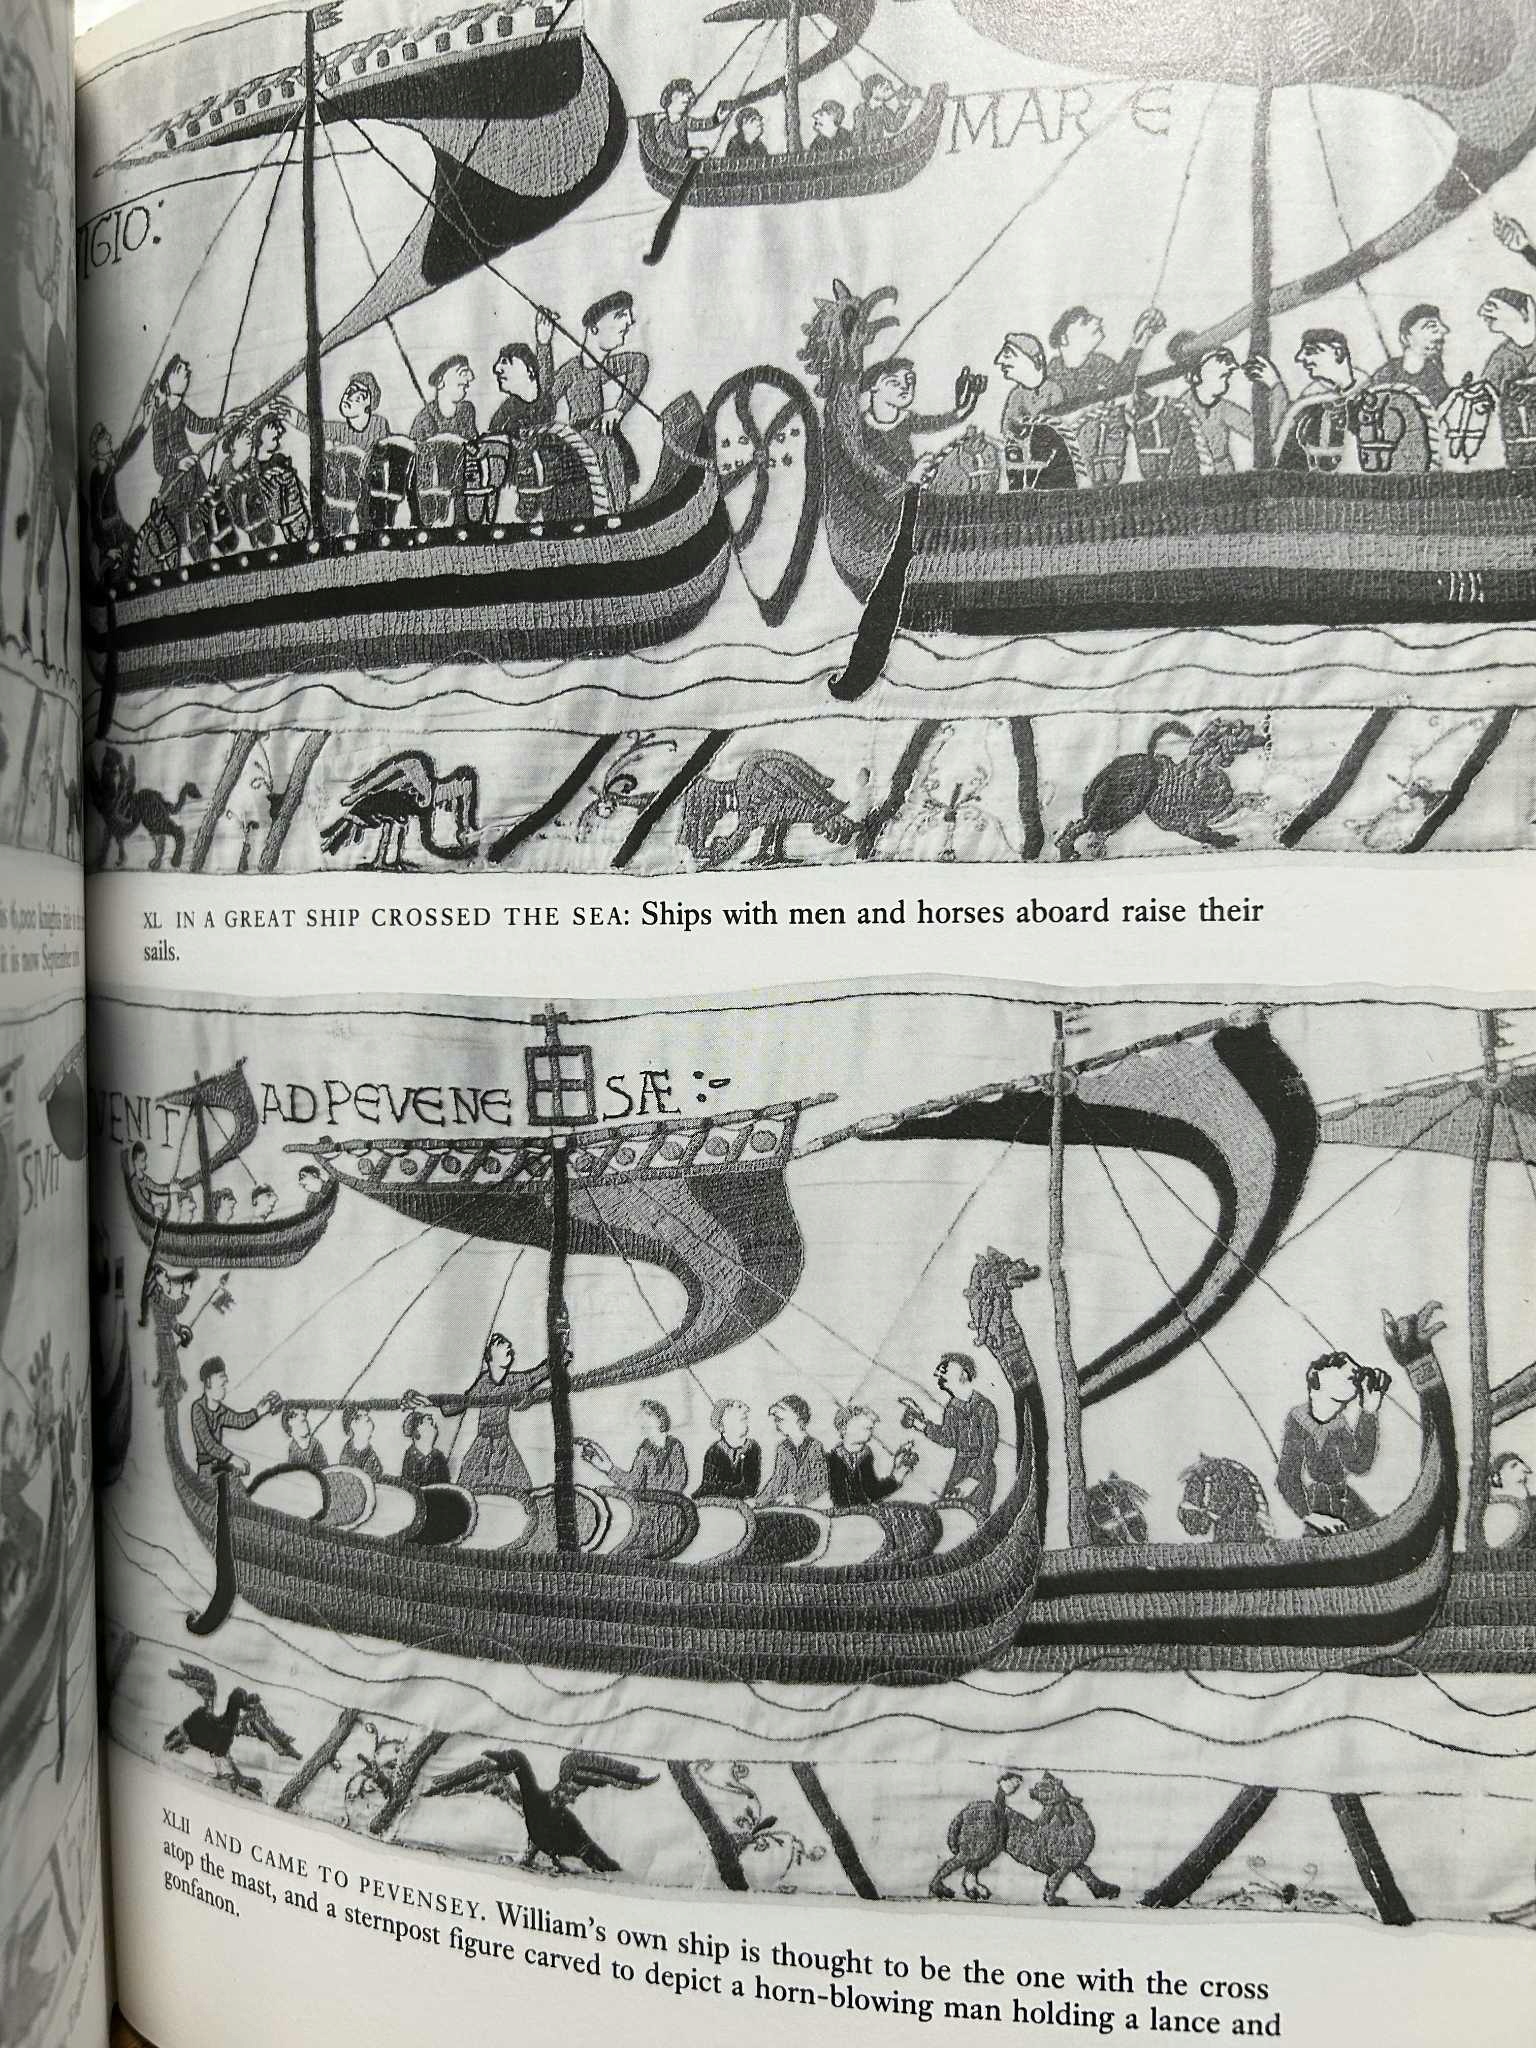 MARE
IGIO:
XL IN A GREAT SHIP CROSSED THE SEA: Ships with men and horses aboard raise their
sails.
VENIT AD PEVENESÆ:-
XLII AND CAME TO PEVENSEY. William's own ship is thought to be the one with the cross
atop the mast, and a sternpost figure carved to depict a horn-blowing man holding a lance and
gonfanon.
6,000 knights
it is now September